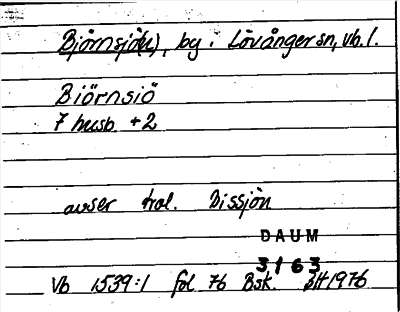 Björnsjö(n), by. Lövånger sn, Vb. l.
Biörnsiö
7 husb +2
avser trol. Bissjön
DAUM
3163
Vb 1539:1 fol 76 Bsk. 1976